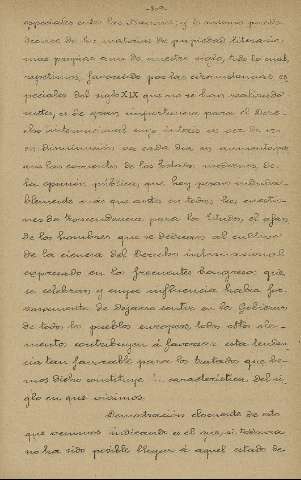 especiales entre las Naciones; y lo mismo puede
decirse de las materias de propiedad literaria,
mas propias aun de nuestro siglo, todo lo cual,
repetimos, favorecido por las circunstancias es
peciales del siglo XIX que no se han realizado
antes, es de gran importancia para el Dere-
cho internacional cuyo interés en vez de ir
en disminución va cada dia en aumento, por
que las corrientes de los Estados modernos, de
la opinión pública, que hoy pesan induda-
blemente mas que antes en todas las cuestio-
nes de trascendencia para los Estados, el afan
de los hombres que se dedican al cultivo
de la ciencia del Derecho internacional
expresado en los frecuentes Congresos que
se celebran, y cuya influencia habia for-
zosamente de dejarse sentir en los Gobiernos
de todos los pueblos europeos, todos estos ele-
mentos contribuyen á favorecer esta tenden
cia tan favorable para los tratados que he-
mos dicho constituye la característica del si-
glo en que vivimos.
Demostración elocuente de esto
que venimos indicando es el que, si todavia
no ha sido posible llegar á aquel estado de